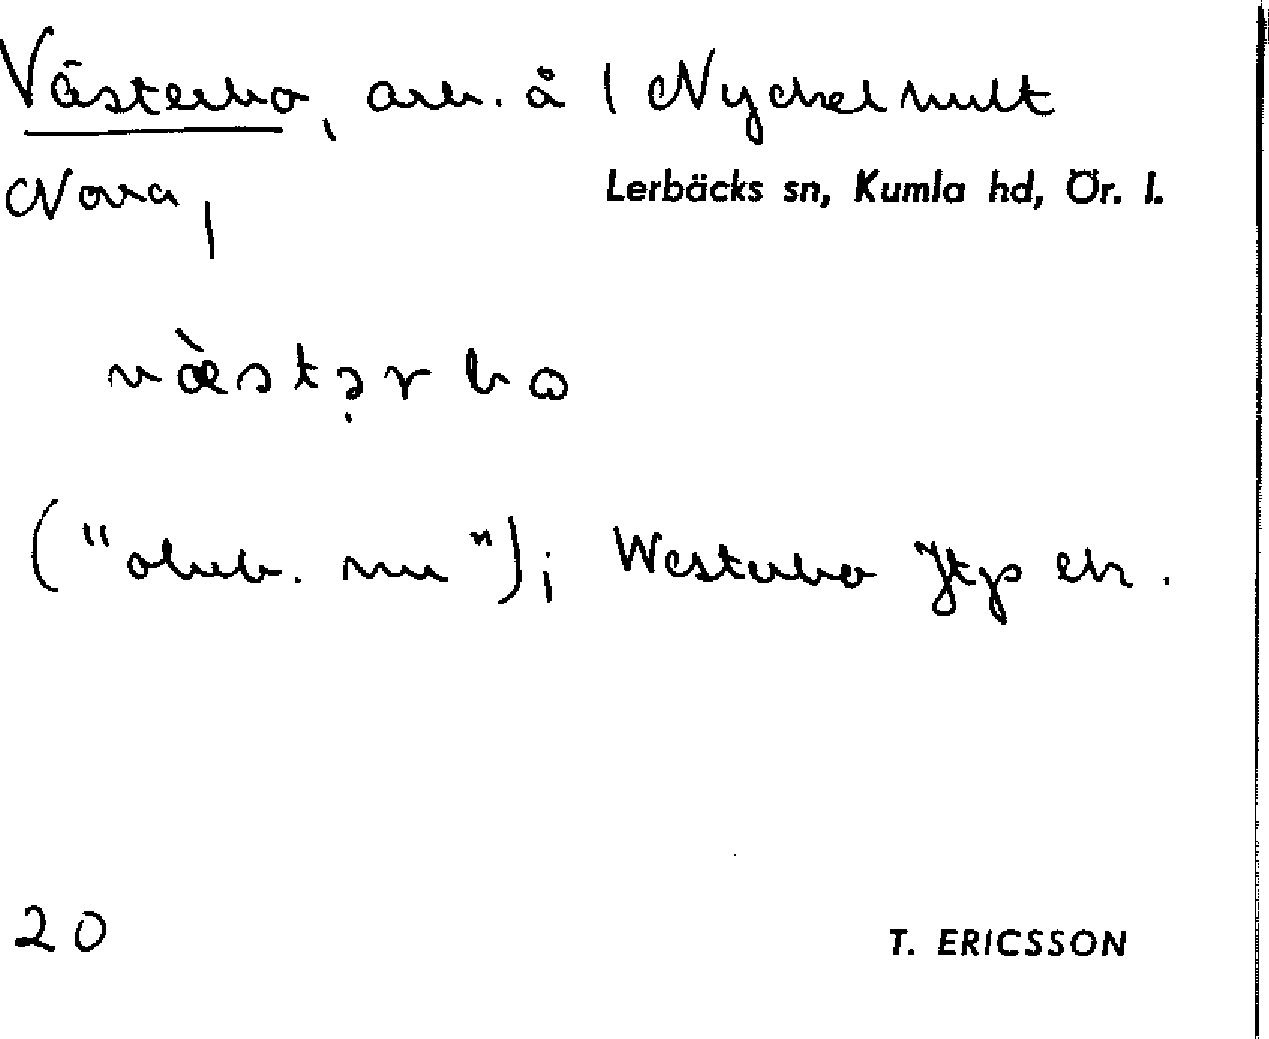 Västerbo, arb. å 1 Nyckelhult
Norra,
Lerbäcks sn, Kumla hd, Ör. l.
væ̀stərbo
("obeb. nu"); Westerbo Jtp ek.
20
T. ERICSSON